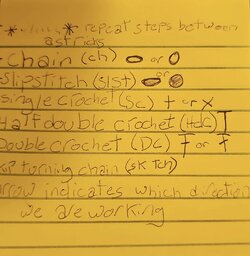 * * repeat steps between
astricks
chain (ch) or
slipstitch (slst) or
single crochet (Sc) + or x
Half double crochet (Hdc) T
Double crochet (DC) T or T
turning chain (sk Tch)
arrow indicates which direction
we are working